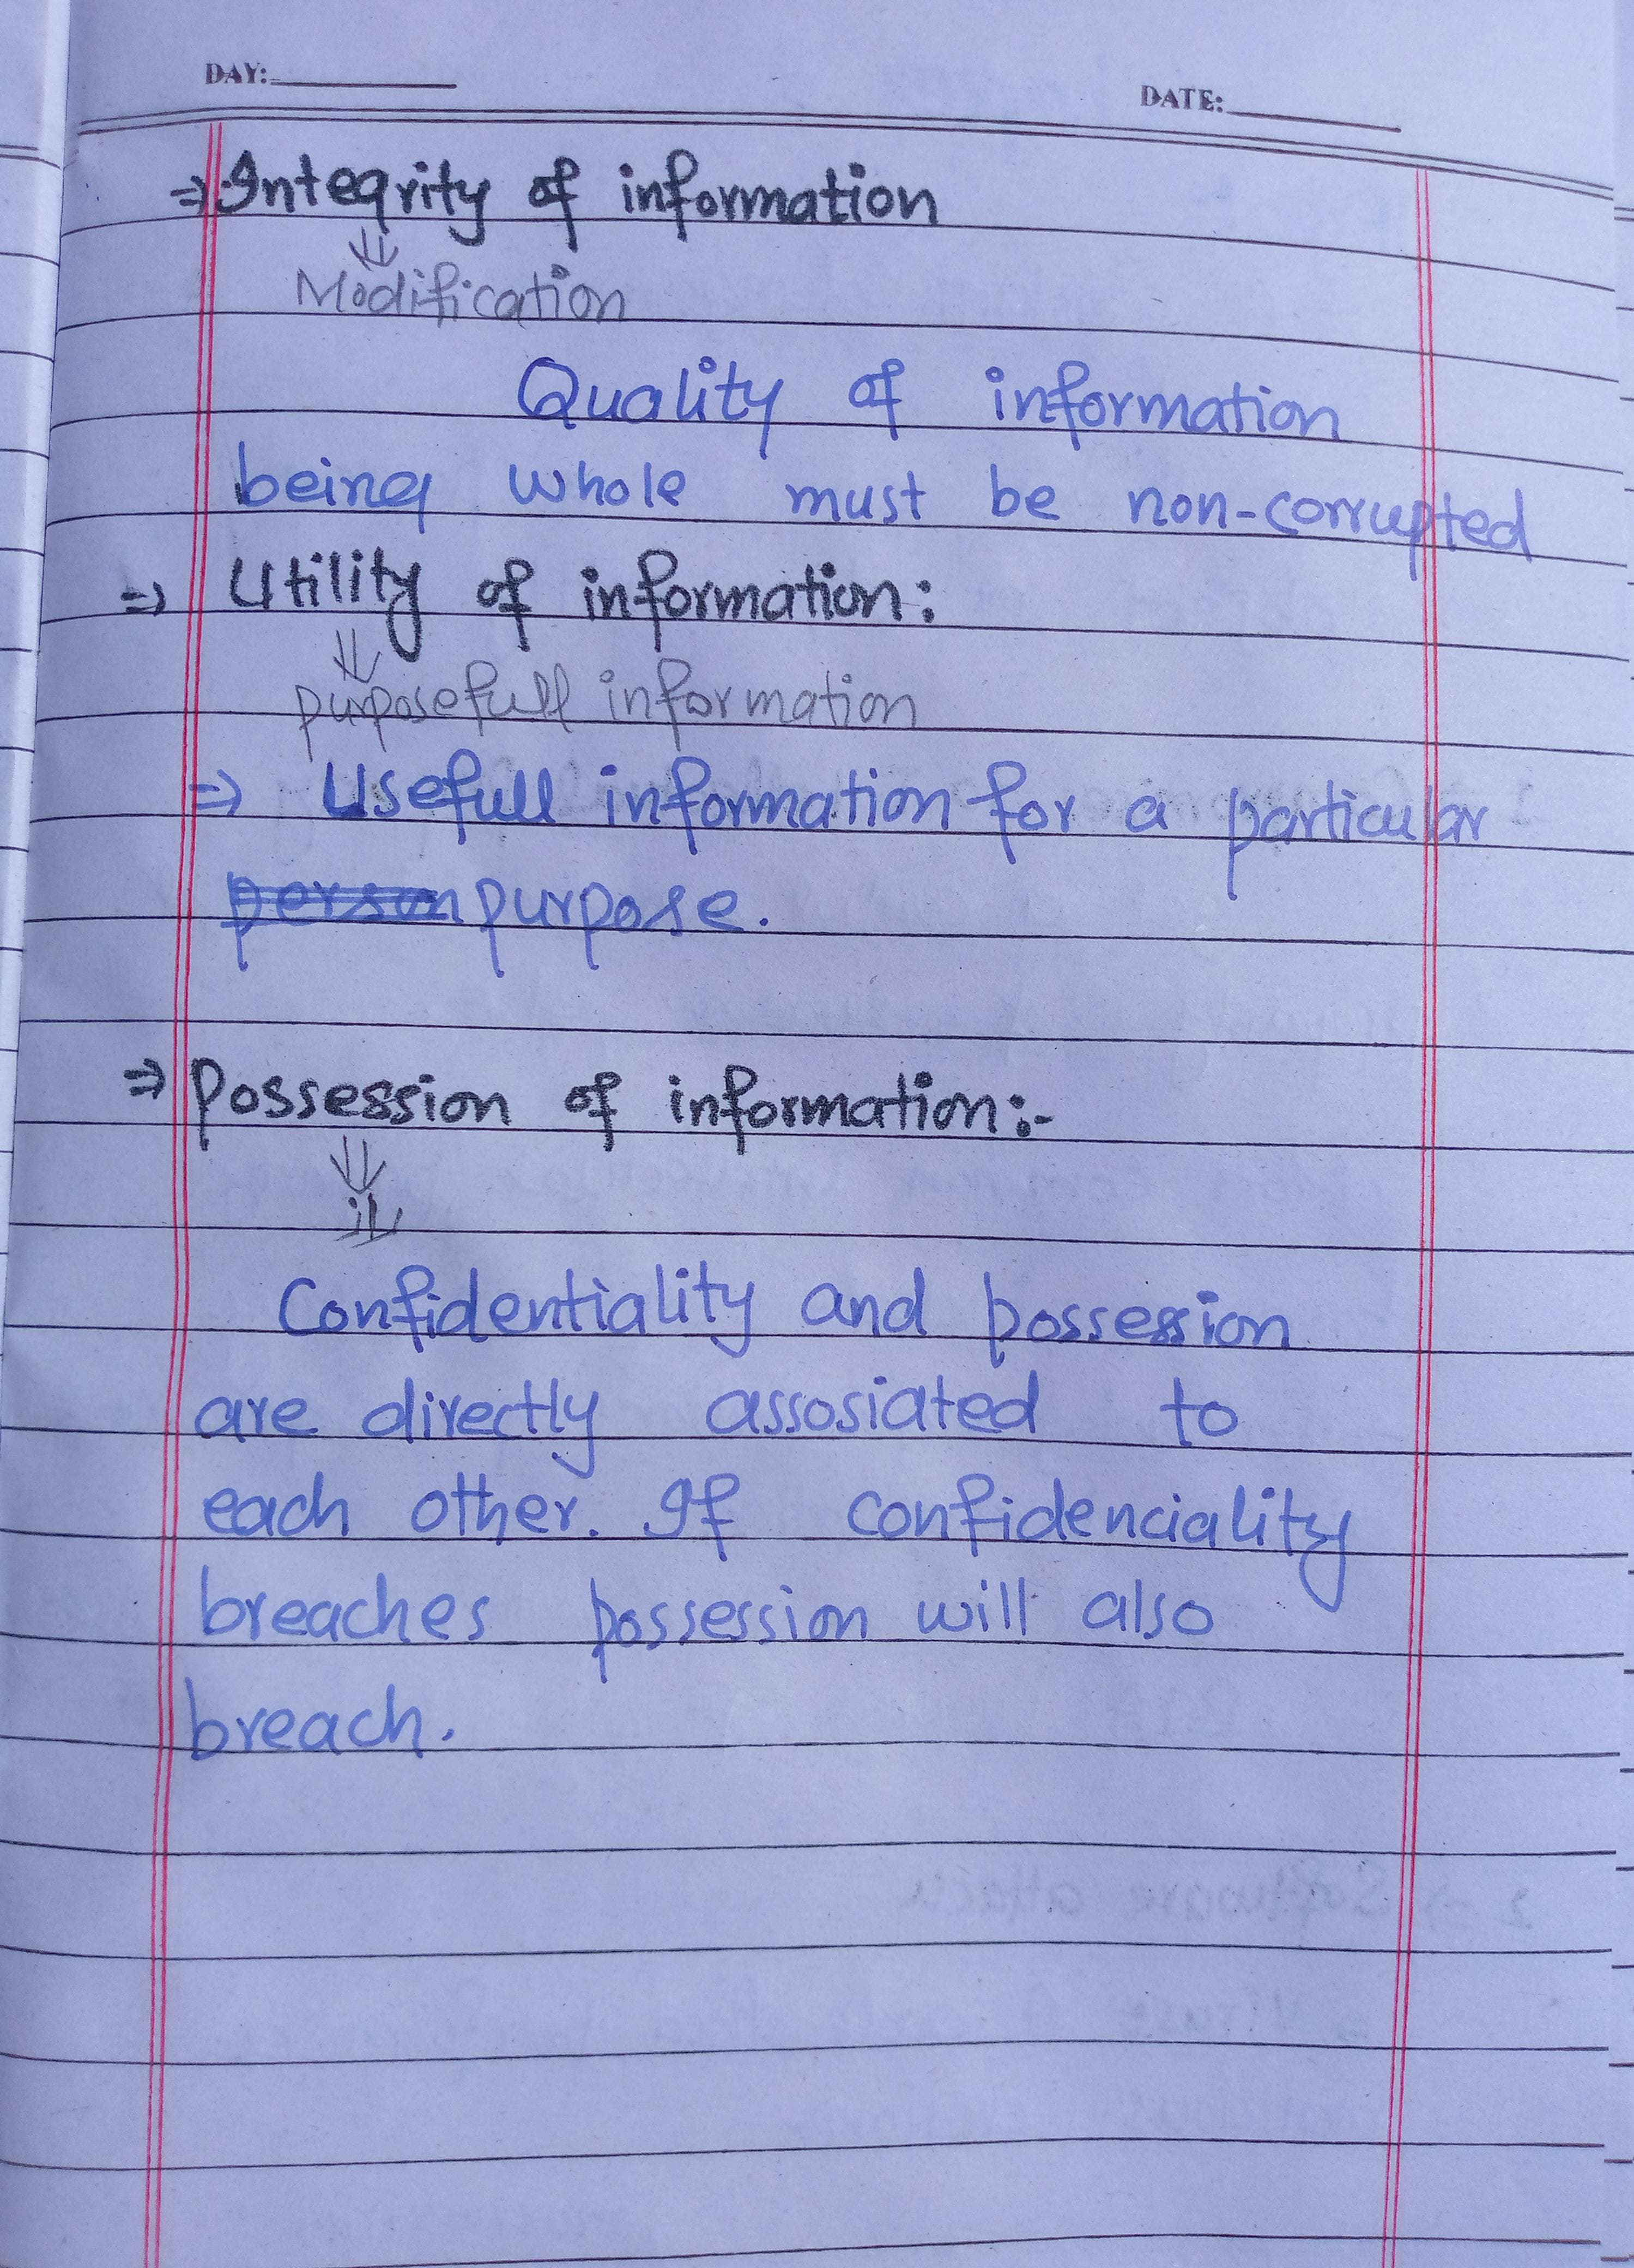 DAY:
DATE:
⇒ Integrity of information
⇓
Modification
Quality of information
being whole must be non-corrupted
⇒ Utility of information:
⇓
purposefull information
⇒ Usefull information for a particular
person purpose.
⇒ Possession of information:-
⇓
Confidentiality and possession
are directly assosiated to
each other. If confidenciality
breaches possession will also
breach.